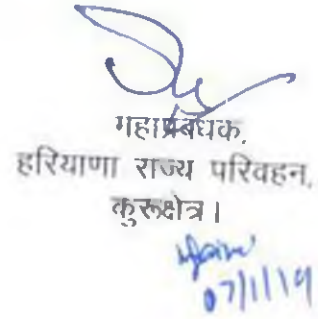 महाप्रबंधक,
हरियाणा राज्य परिवहन,
कुरूक्षेत्र।
07/1/19